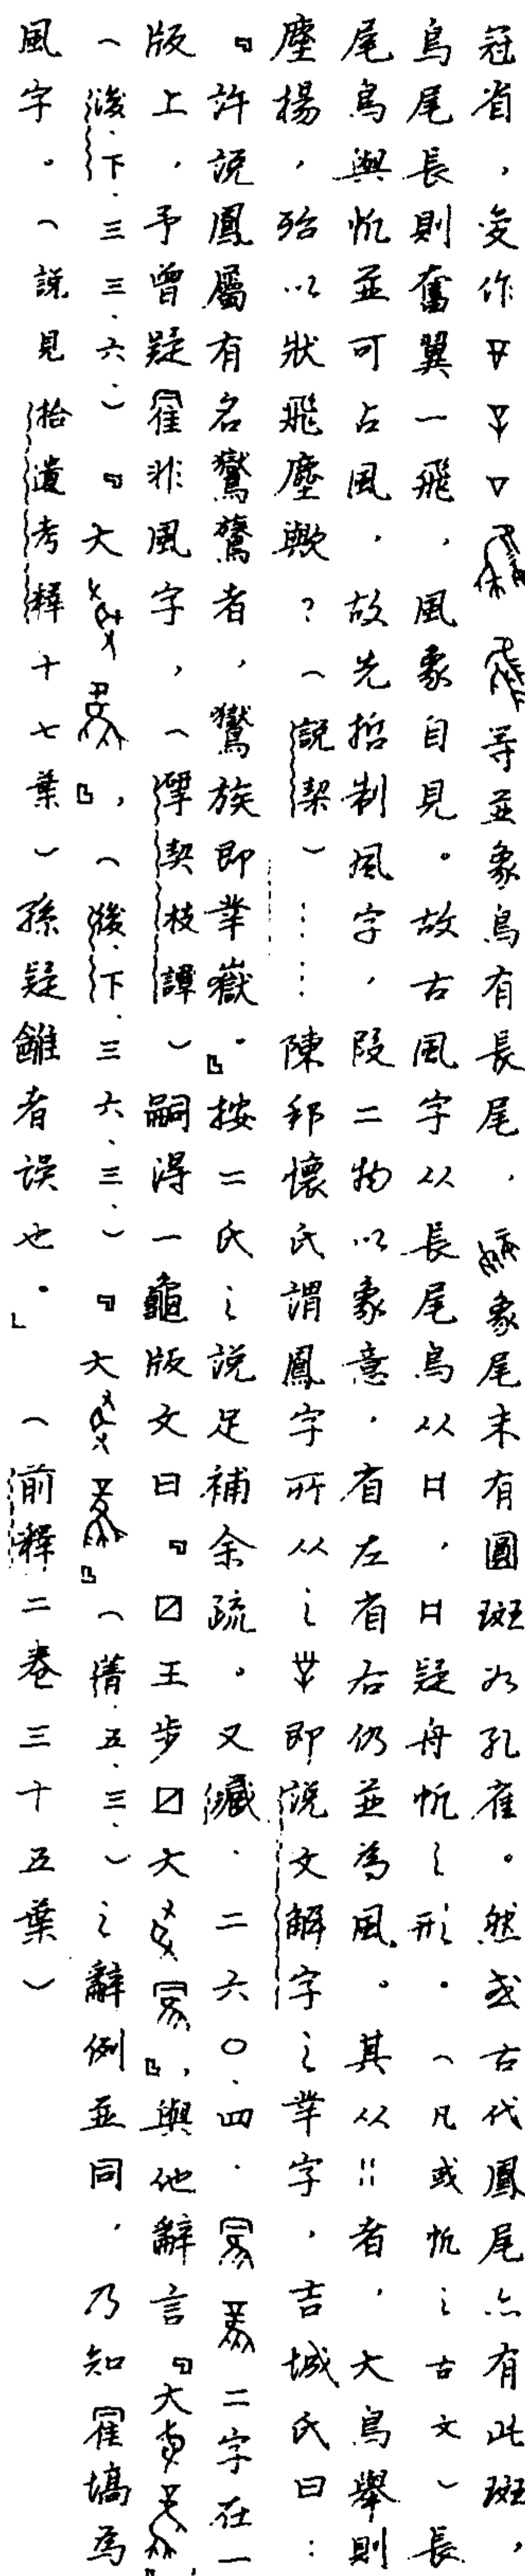 冠省，变作等並象鳥有長尾，象尾末有圓斑如孔雀。然或古代鳳尾亦有此斑，
鳥尾長則奮翼一飛，風象自見。故古風字从長尾鳥从日，日疑舟帆之形。（凡或帆之古文）長
尾鳥與帆並可占風，故先哲制風字，段二物以象意，省左省右仍並為風。其从⁞⁞者，大鳥舉則
塵揚，殆以狀飛塵歟？（說契）……陳邦懷氏謂鳳字所从之即說文解字之丵字，吉城氏曰：
『許說鳳屬有名鸑鷟者，鸑族即丵嶽。』按二氏之說足補余疏。又藏．二六〇．四．二字在一
版上，予曾疑非風字，（殷契枝譚）嗣得一龜版文曰『☐王步☐大』，與他辭言『大』
（後．下．三三．六．）『大』，（後．下．三六．三．）『大』（菁．五．三．）之辭例並同，乃知塙為
風字。（說見拾遺考釋十七葉）孫疑雝者误也。」（前釋二卷三十五葉）